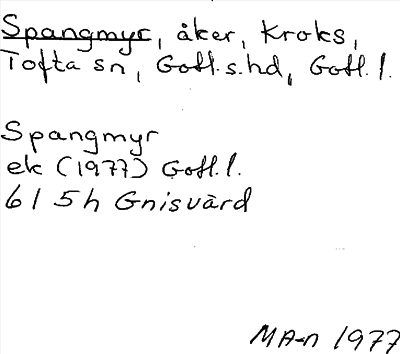 Spangmyr, åker, Kroks,
Tofta sn, Gotl.s.hd, Gotl.l.
Spangmyr
ek (1977) Gotl.l.
6 I 5h Gnisvärd
MA-n 1977